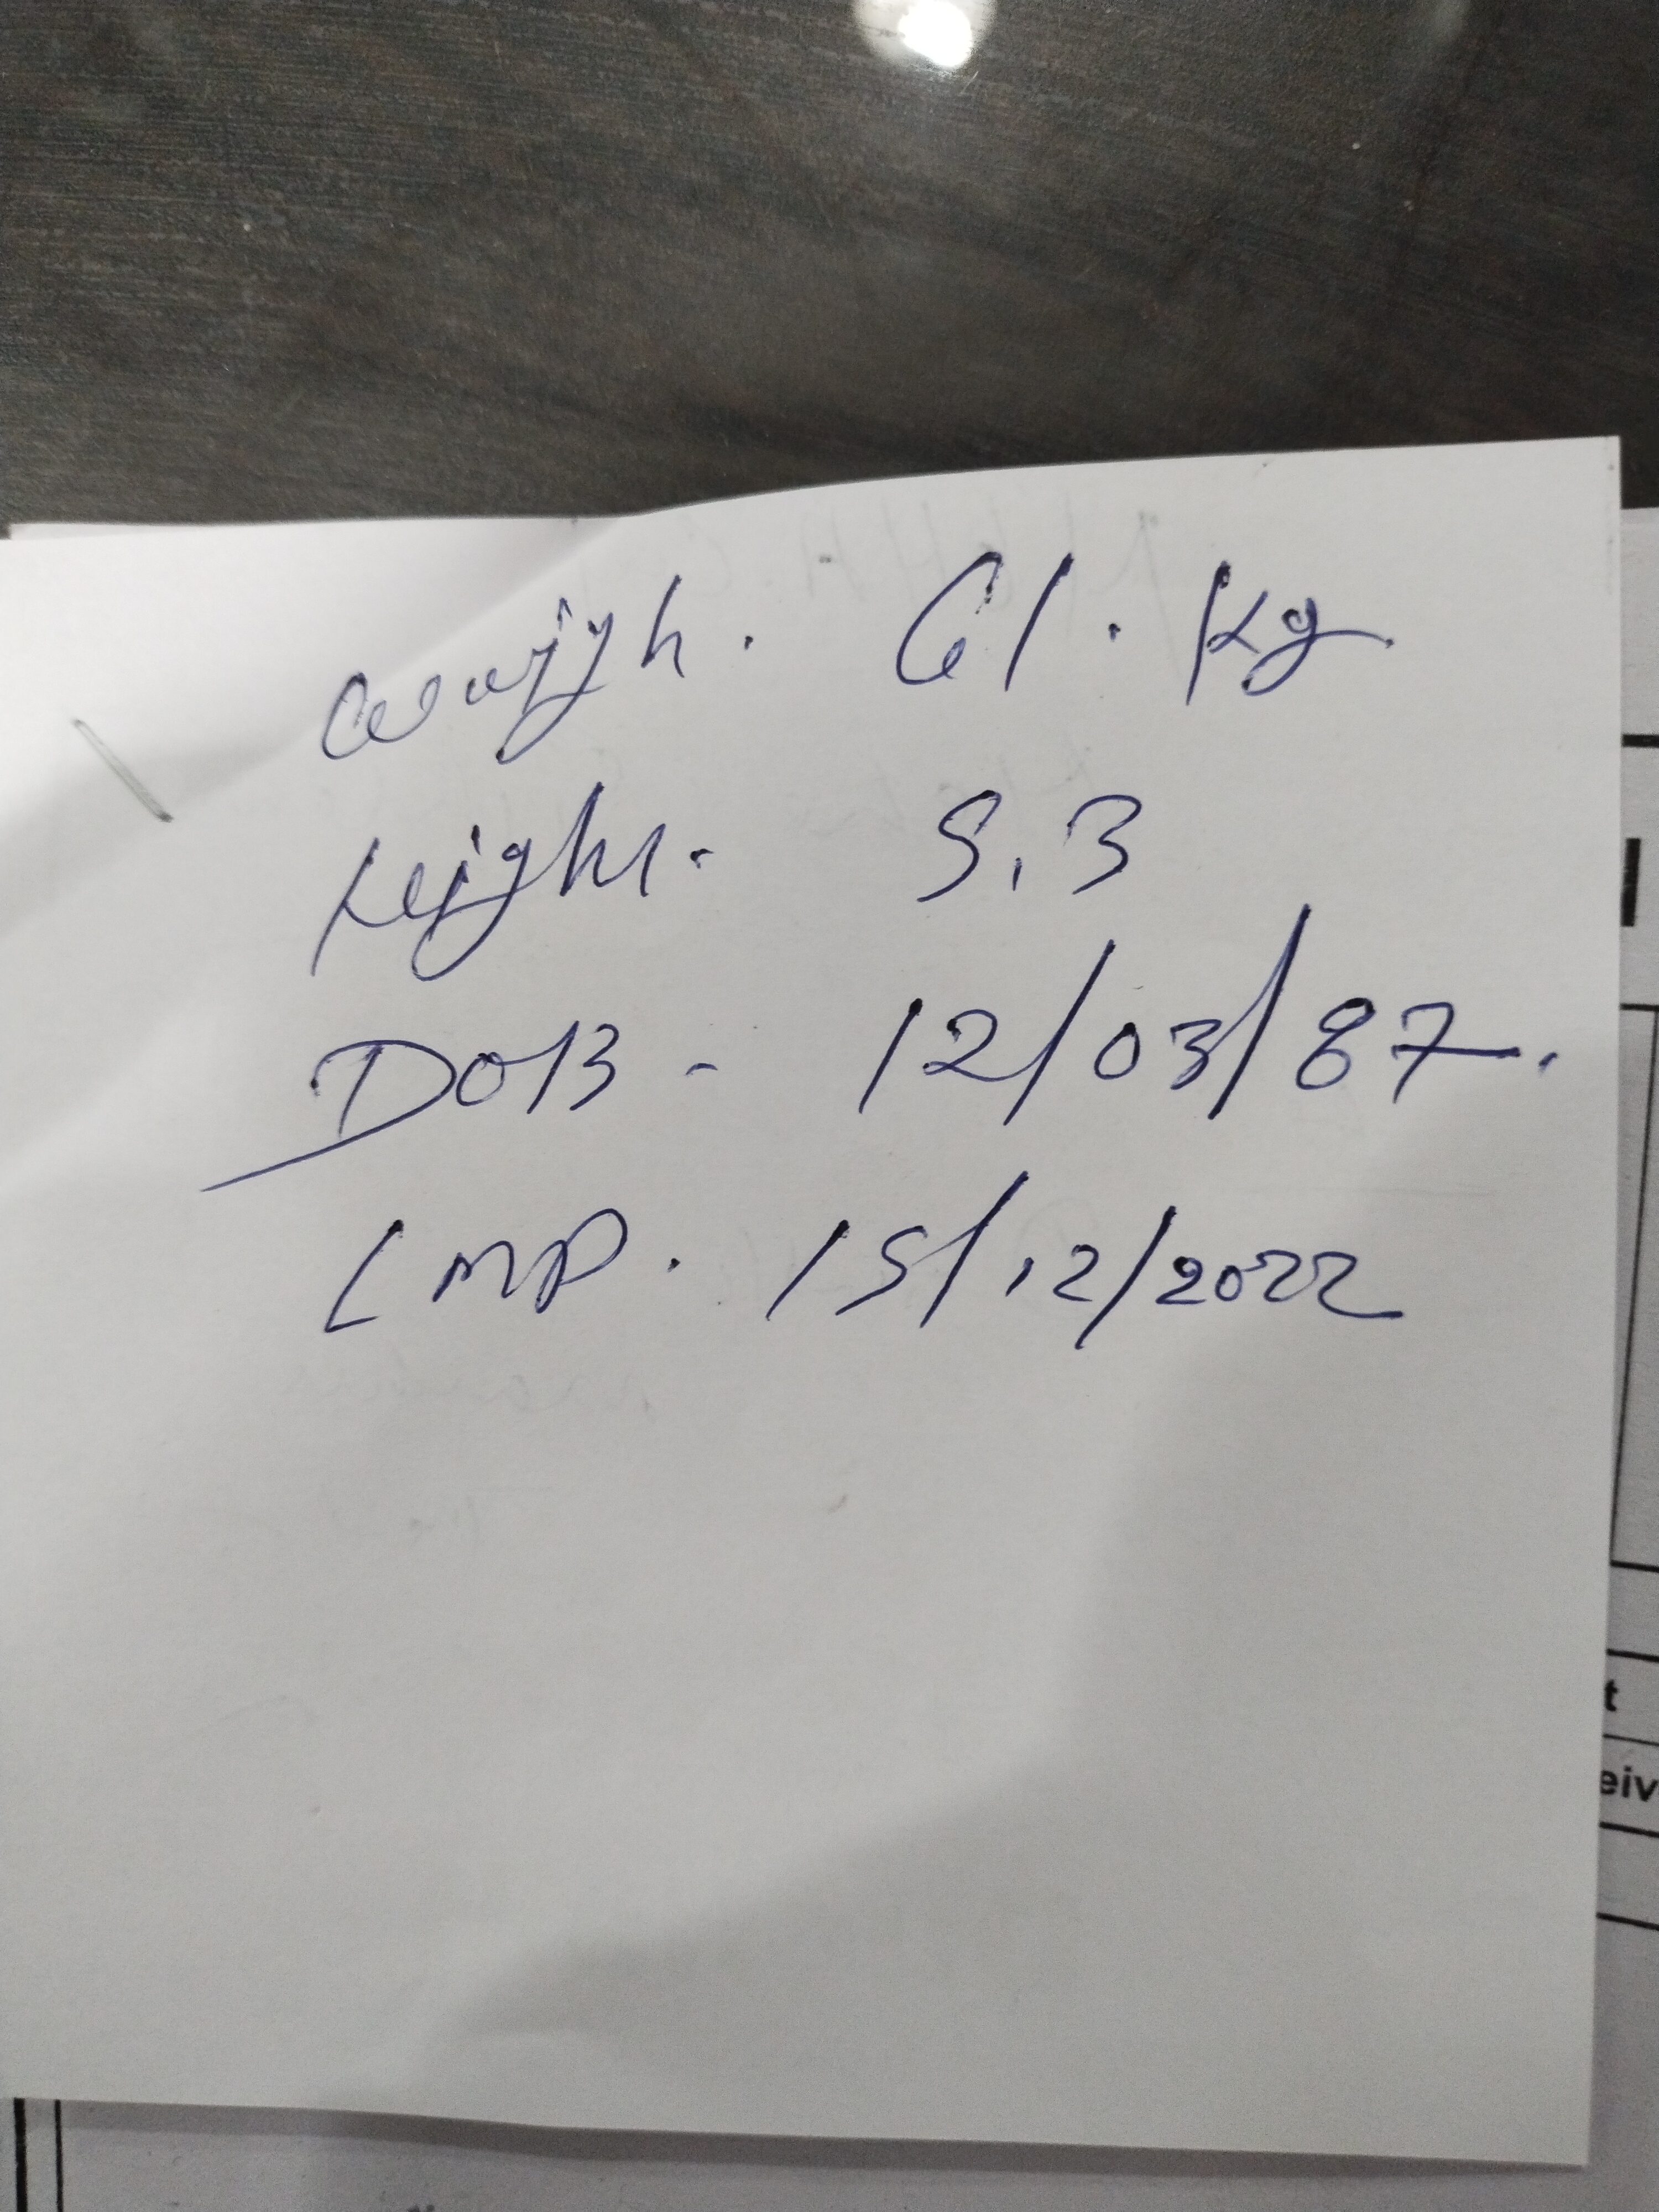 Weigh. 61. Kg
Height. 5.3
DOB - 12/03/87.
LMP. 15/12/2022
t
eiv